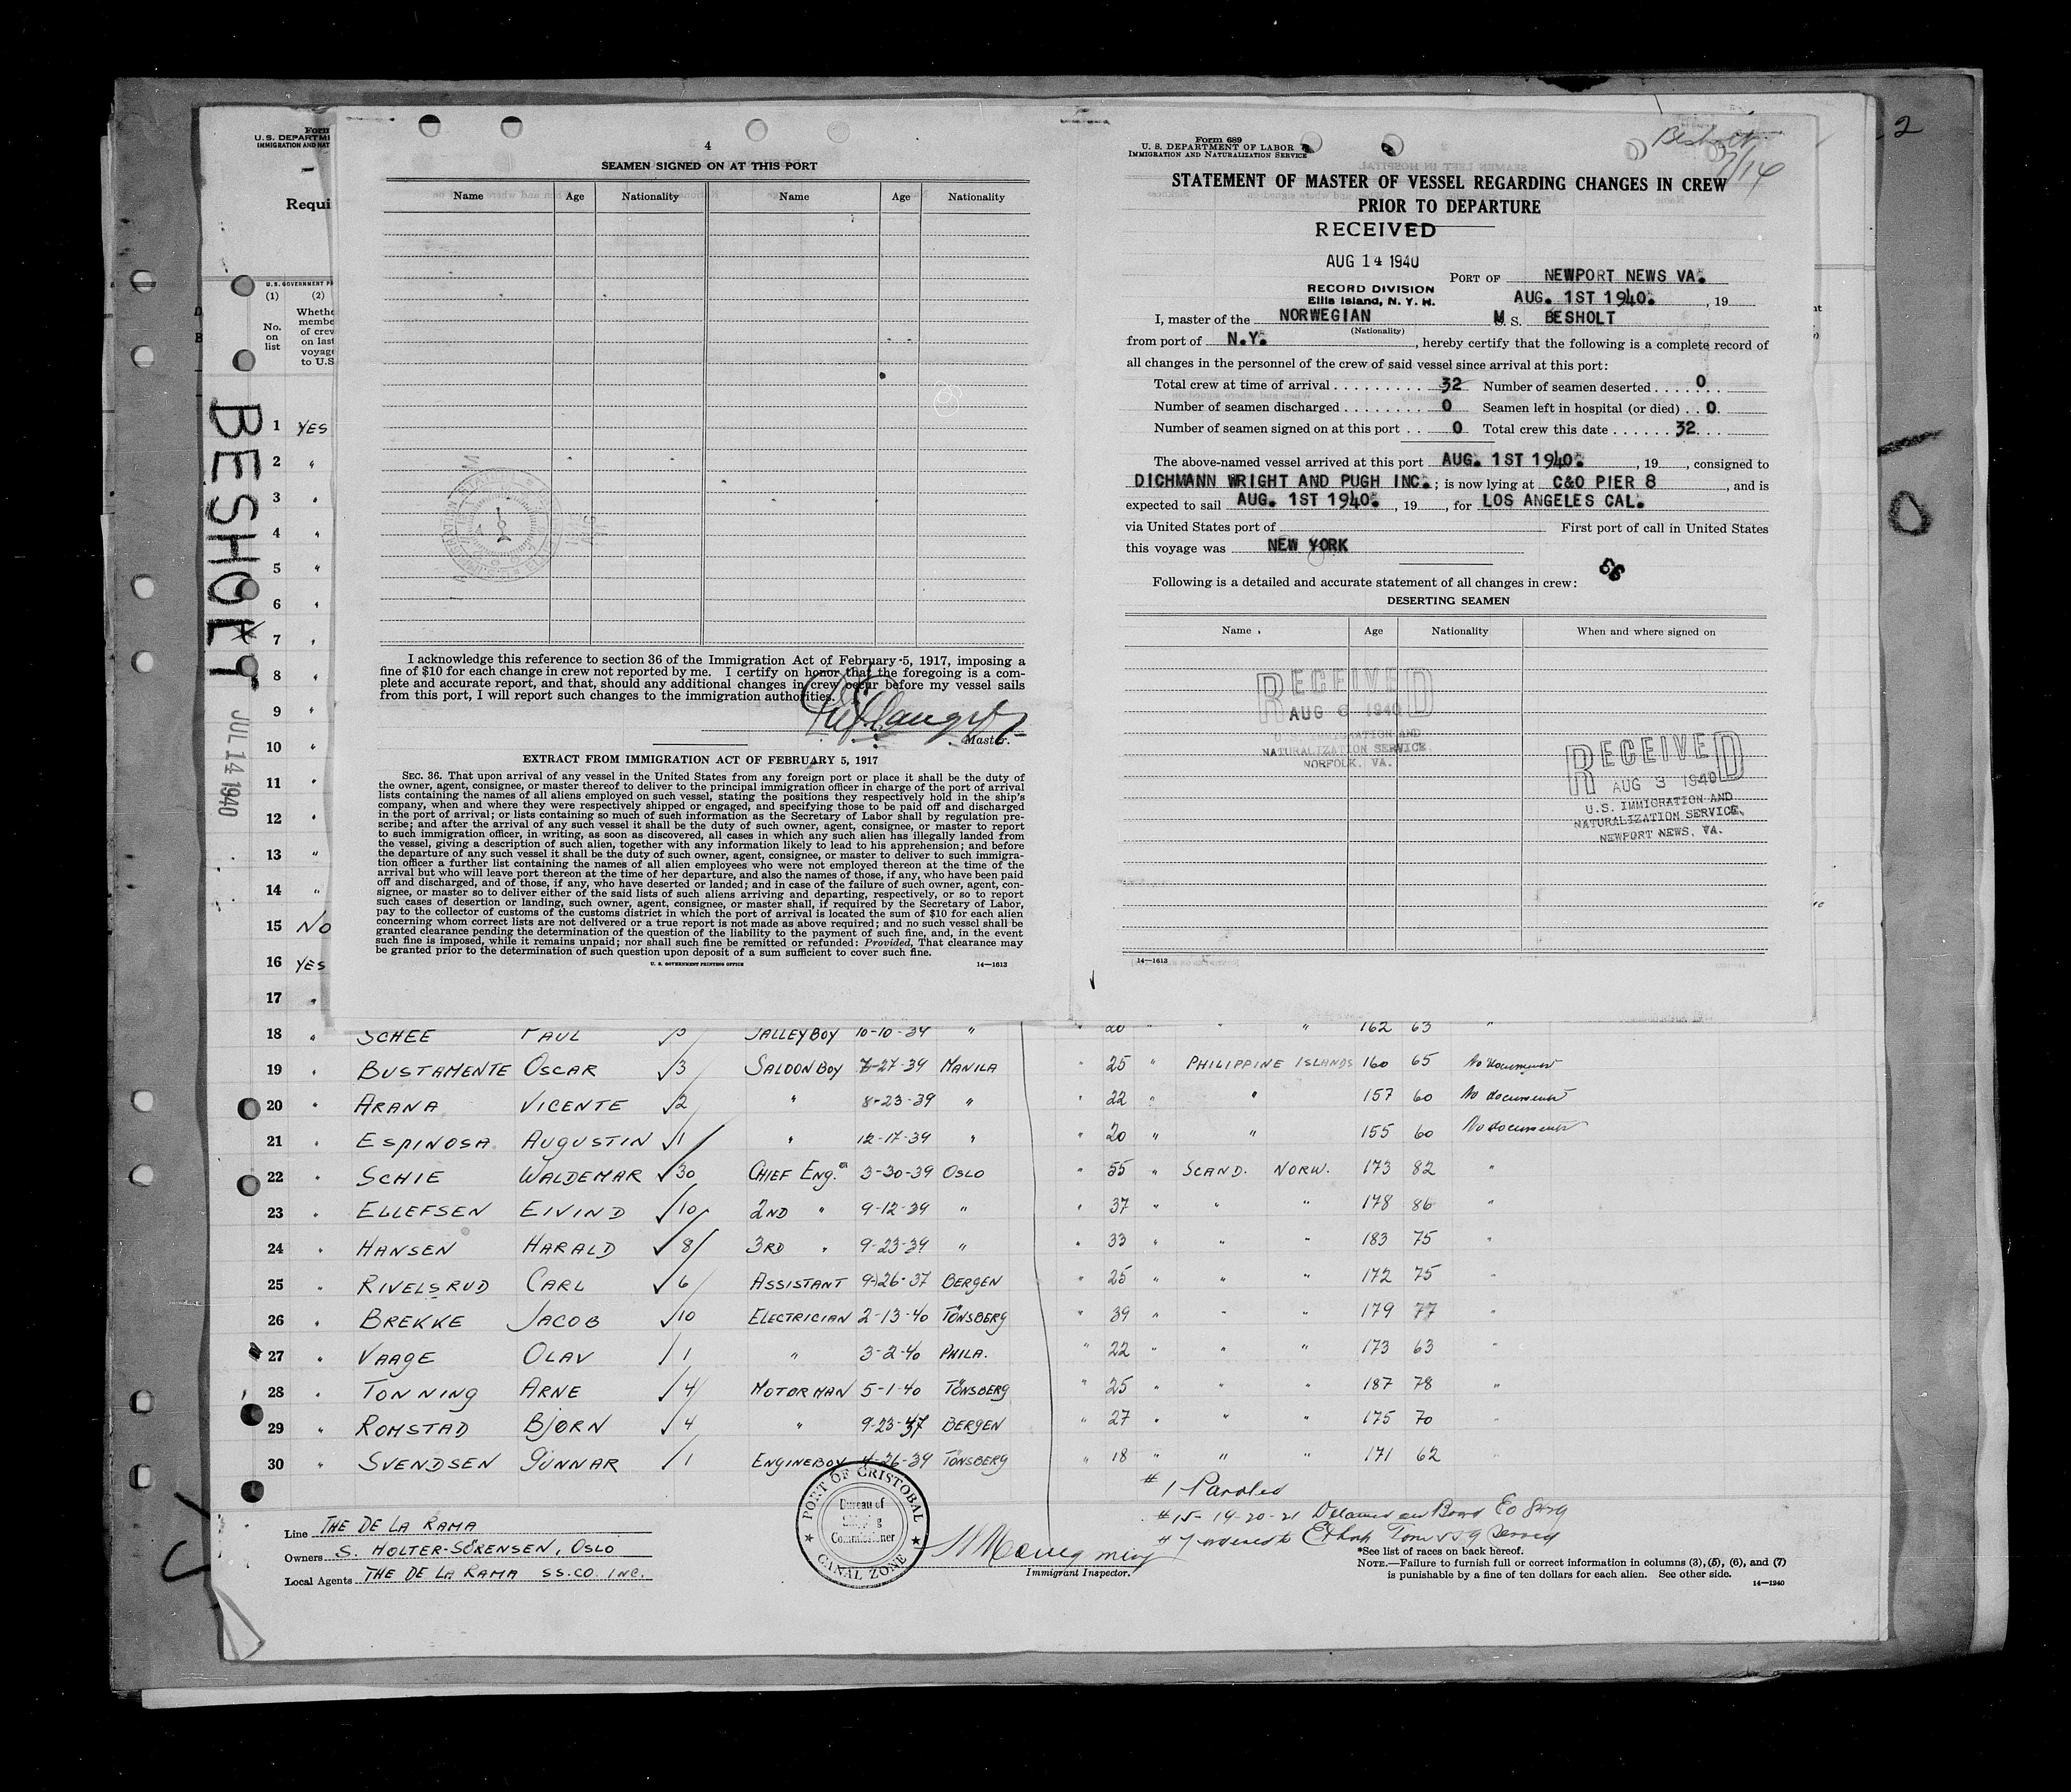 4
SEAMEN SIGNED ON AT THIS PORT
Name Age Nationality Name Age Nationality
I acknowledge this reference to section 36 of the Immigration Act of February 5, 1917, imposing a
fine of $10 for each change in crew not reported by me. I certify on honor that the foregoing is a com-
plete and accurate report, and that, should any additional changes in crew occur before my vessel sails
from this port, I will report such changes to the immigration authorities.
Master.
EXTRACT FROM IMMIGRATION ACT OF FEBRUARY 5, 1917
SEC. 36. That upon arrival of any vessel in the United States from any foreign port or place it shall be the duty of
the owner, agent, consignee, or master thereof to deliver to the principal immigration officer in charge of the port of arrival
lists containing the names of all aliens employed on such vessel, stating the positions they respectively hold in the ship's
company, when and where they were respectively shipped or engaged, and specifying those to be paid off and discharged
in the port of arrival; or lists containing so much of such information as the Secretary of Labor shall by regulation pre-
scribe; and after the arrival of any such vessel it shall be the duty of such owner, agent, consignee, or master to report
to such immigration officer, in writing, as soon as discovered, all cases in which any such alien has illegally landed from
the vessel, giving a description of such alien, together with any information likely to lead to his apprehension; and before
the departure of any such vessel it shall be the duty of such owner, agent, consignee, or master to deliver to such immigra-
tion officer a further list containing the names of all alien employees who were not employed thereon at the time of the
arrival but who will leave port thereon at the time of her departure, and also the names of those, if any, who have been paid
off and discharged, and of those, if any, who have deserted or landed; and in case of the failure of such owner, agent, con-
signee, or master so to deliver either of the said lists of such aliens arriving and departing, respectively, or so to report
such cases of desertion or landing, such owner, agent, consignee, or master shall, if required by the Secretary of Labor,
pay to the collector of customs of the customs district in which the port of arrival is located the sum of $10 for each alien
concerning whom correct lists are not delivered or a true report is not made as above required; and no such vessel shall be
granted clearance pending the determination of the question of the liability to the payment of such fine, and, in the event
such fine is imposed, while it remains unpaid; nor shall such fine be remitted or refunded: Provided, That clearance may
be granted prior to the determination of such question upon deposit of a sum sufficient to cover such fine.
U. S. GOVERNMENT PRINTING OFFICE 14—1613
Form 689
U. S. DEPARTMENT OF LABOR
IMMIGRATION AND NATURALIZATION SERVICE
Besholt
7/14
2
STATEMENT OF MASTER OF VESSEL REGARDING CHANGES IN CREW
PRIOR TO DEPARTURE
RECEIVED
AUG 14 1940
RECORD DIVISION
Ellis Island, N. Y. H.
PORT OF NEWPORT NEWS VA.
AUG. 1ST 1940. , 19
I, master of the NORWEGIAN M. S. BESHOLT
(Nationality)
from port of N.Y. , hereby certify that the following is a complete record of
all changes in the personnel of the crew of said vessel since arrival at this port:
Total crew at time of arrival 32 Number of seamen deserted 0
Number of seamen discharged 0 Seamen left in hospital (or died) 0
Number of seamen signed on at this port 0 Total crew this date 32
The above-named vessel arrived at this port AUG. 1ST 1940. , 19 , consigned to
DICHMANN WRIGHT AND PUGH INC. ; is now lying at C&O PIER 8 , and is
expected to sail AUG. 1ST 1940. , 19 , for LOS ANGELES CAL.
via United States port of First port of call in United States
this voyage was NEW YORK
Following is a detailed and accurate statement of all changes in crew:
DESERTING SEAMEN
Name Age Nationality When and where signed on
RECEIVED
AUG 6 1940
U.S. IMMIGRATION AND
NATURALIZATION SERVICE
NORFOLK, VA.
RECEIVED
AUG 3 1940
U.S. IMMIGRATION AND
NATURALIZATION SERVICE,
NEWPORT NEWS, VA.
14—1613
Form
U. S. DEPARTM
IMMIGRATION AND NAT
Requi
U.S. GOVERNMENT P
(1) (2)
No. on list
Whethe
membe
of crew
on last
voyage
to U.S.
BESHOLT
JUL 14 1940
1 YES
2 "
3 "
4 "
5 "
6 "
7 "
8 "
9 "
10 "
11 "
12 "
13 "
14 "
15 NO
16 YES
17 "
18 " SCHEE PAUL GALLEYBOY 10-10-39 " " 20 " " " 162 63 "
19 " BUSTAMENTE OSCAR 3 SALOONBOY 7-27-39 MANILA " 25 " PHILIPPINE ISLANDS 160 65 No document
20 " ARANA VICENTE 2 " 8-23-39 " " 22 " " 157 60 No document
21 " ESPINOSA AUGUSTIN 1 " 12-17-39 " " 20 " " 155 60 No document
22 " SCHIE WALDEMAR 30 CHIEF ENG. 3-30-39 OSLO " 55 " SCAND. NORW. 173 82 "
23 " ELLEFSEN EIVIND 10 2ND " 9-12-39 " " 37 " " " 178 86 "
24 " HANSEN HARALD 8 3RD " 9-23-39 " " 33 " " " 183 75 "
25 " RIVELSRUD CARL 6 ASSISTANT 9-26-37 BERGEN " 25 " " " 172 75 "
26 " BREKKE JACOB 10 ELECTRICIAN 2-13-40 TÖNSBERG " 39 " " " 179 77 "
27 " VAAGE OLAV 1 " 3-2-40 PHILA. " 22 " " " 173 63 "
28 " TONNING ARNE 4 MOTORMAN 5-1-40 TÖNSBERG " 25 " " " 187 78 "
29 " ROMSTAD BJORN 4 " 9-23-37 BERGEN " 27 " " " 175 70 "
30 " SVENDSEN GUNNAR 1 ENGINEBOY 4-26-39 TÖNSBERG " 18 " " " 171 62 "
# 1 Paroled
#15-19-20-21 on Board
Line THE DE LA RAMA
Owners S. HOLTER-SÖRENSEN, OSLO
Local Agents THE DE LA RAMA SS.CO. INC.
PORT OF CRISTOBAL
Bureau of
Shipping
Commissioner
CANAL ZONE
Immigrant Inspector.
*See list of races on back hereof.
NOTE.—Failure to furnish full or correct information in columns (3), (5), (6), and (7)
is punishable by a fine of ten dollars for each alien. See other side.
14—1240